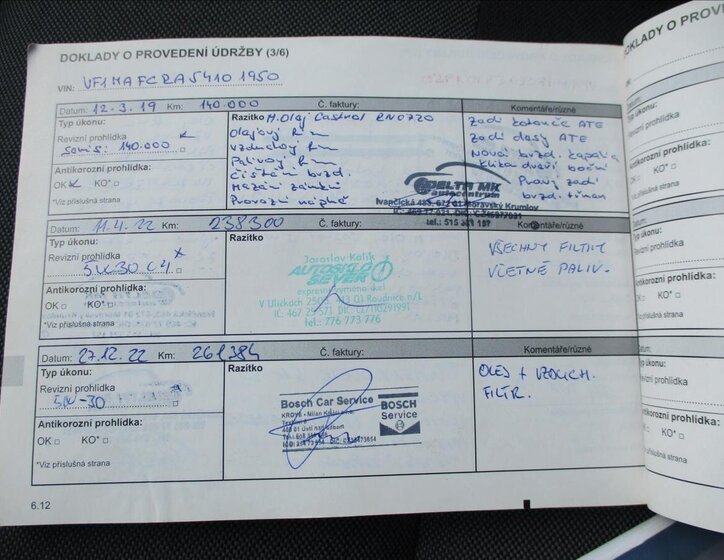 DOKLADY O PROVEDENÍ ÚDRŽBY (3/6)
VIN: VF1MAFCRA54101950
Datum: 12.3.19 Km: 140.000 Č. faktury: Komentáře/různé
Typ úkonu:
Revizní prohlídka
servis: 140.000
Antikorozní prohlídka:
OK KO*
*Viz příslušná strana
Razítko M. Olaj Castrol RN0720
Olajový
Vzduchový
Palivový
čištění brzd.
Mazání zámků
Provozní náplně
Zadí kotouče ATE
Zadí desy ATE
Nová brzd. kapalina
Klika dveří boční
Pravý zadí
brzd. třmen
DELTA MK
autocentrum
Ivančická 485, 672 01 Moravský Krumlov
Datum: 11.4.22 Km: 238300 Č. faktury: Komentáře/různé
Typ úkonu:
Revizní prohlídka
5W30 C4
Antikorozní prohlídka:
OK KO*
*Viz příslušná strana
Razítko
Jaroslav Kalík
AUTOSKLO
SEVER
V Uličkách 413 01 Roudnice n/L
tel.: 776 773 776
VŠECHNY FILTRY
VČETNĚ PALIV.
Datum: 27.12.22 Km: 261384 Č. faktury: Komentáře/různé
Typ úkonu:
Revizní prohlídka
5W-30
Antikorozní prohlídka:
OK KO*
*Viz příslušná strana
Razítko
Bosch Car Service
400 01 Ústí nad Labem
BOSCH
Service
OLEJ + VZDUCH.
FILTR.
6.12
DOKLADY O PROV
VIN:
Datum:
Typ úkonu:
Revizní prohlídka
Antikorozní prohlídka:
OK KO*
*Viz příslušná strana
Datum:
Typ úkonu:
Revizní prohlídka
Antikorozní prohlídka:
OK KO*
*Viz příslušná strana
Datum:
Typ úkonu:
Revizní prohlídka
Antikorozní prohlídka:
OK KO*
*Viz příslušná strana